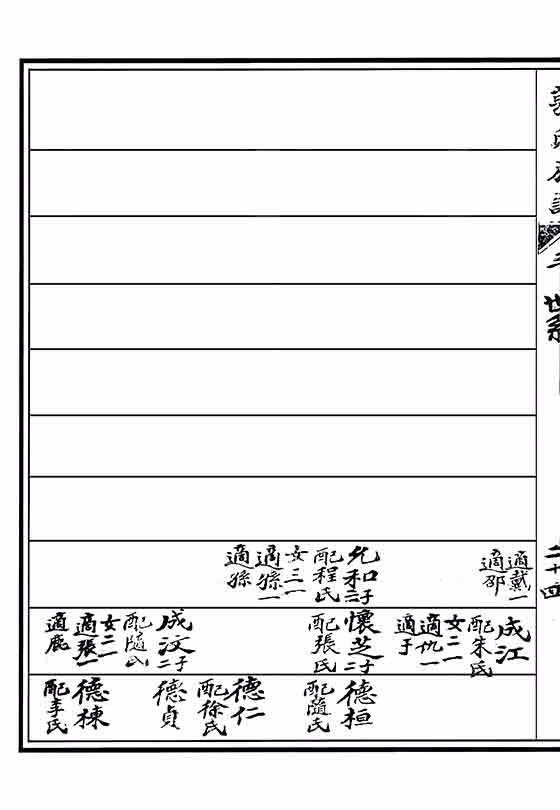 世系
二十四
適戴一
適邵
允和二子
配程氏
女三一
適孫一
適孫
成江
配朱氏
女二一
適仇一
適于
懷芝二子
配張氏
成汶二子
配隨氏
女二一
適張一
適鹿
德桓
配隨氏
德仁
配徐氏
德貞
德棟
配李氏